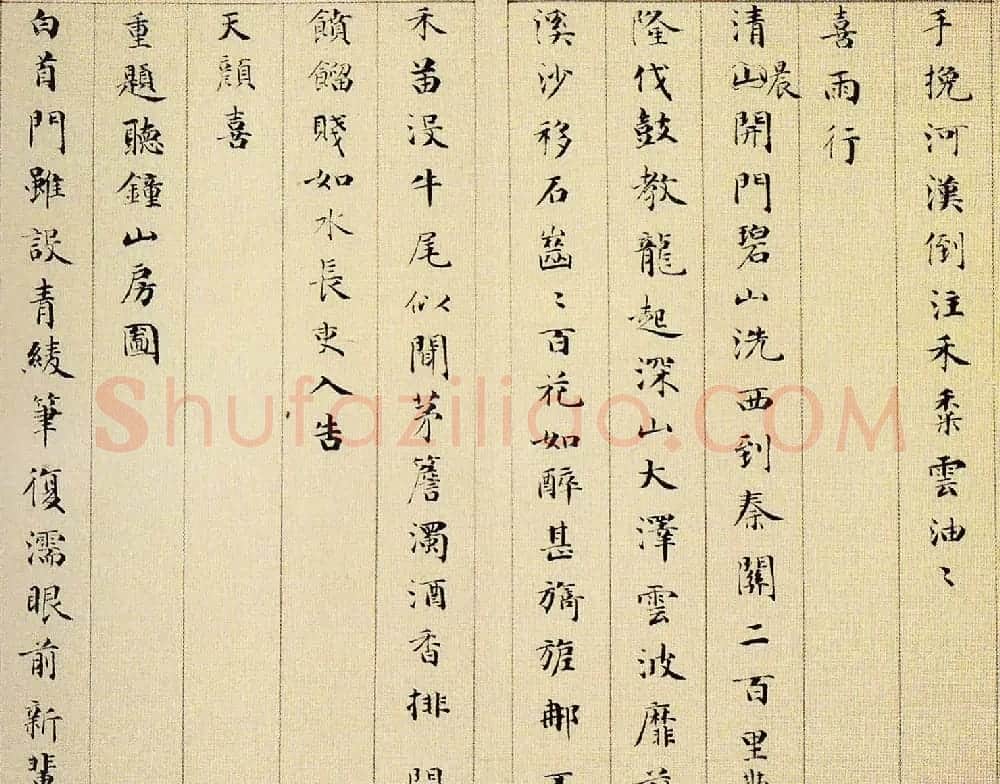 手挽河漢倒注禾黍雲油〻
喜雨行
清山晨開門碧山洗西到秦關二百里
隆伐鼓教龍起深山大澤雲波靡
溪沙移石齒〻百花如醉甚旖旎那
禾苗没牛尾似聞茅簷濁酒香排
饙餾賤如水長吏入告
天顏喜
重題聽鐘山房圖
白首門雖設青綾筆復濡眼前新輩
Shufaziliao.COM